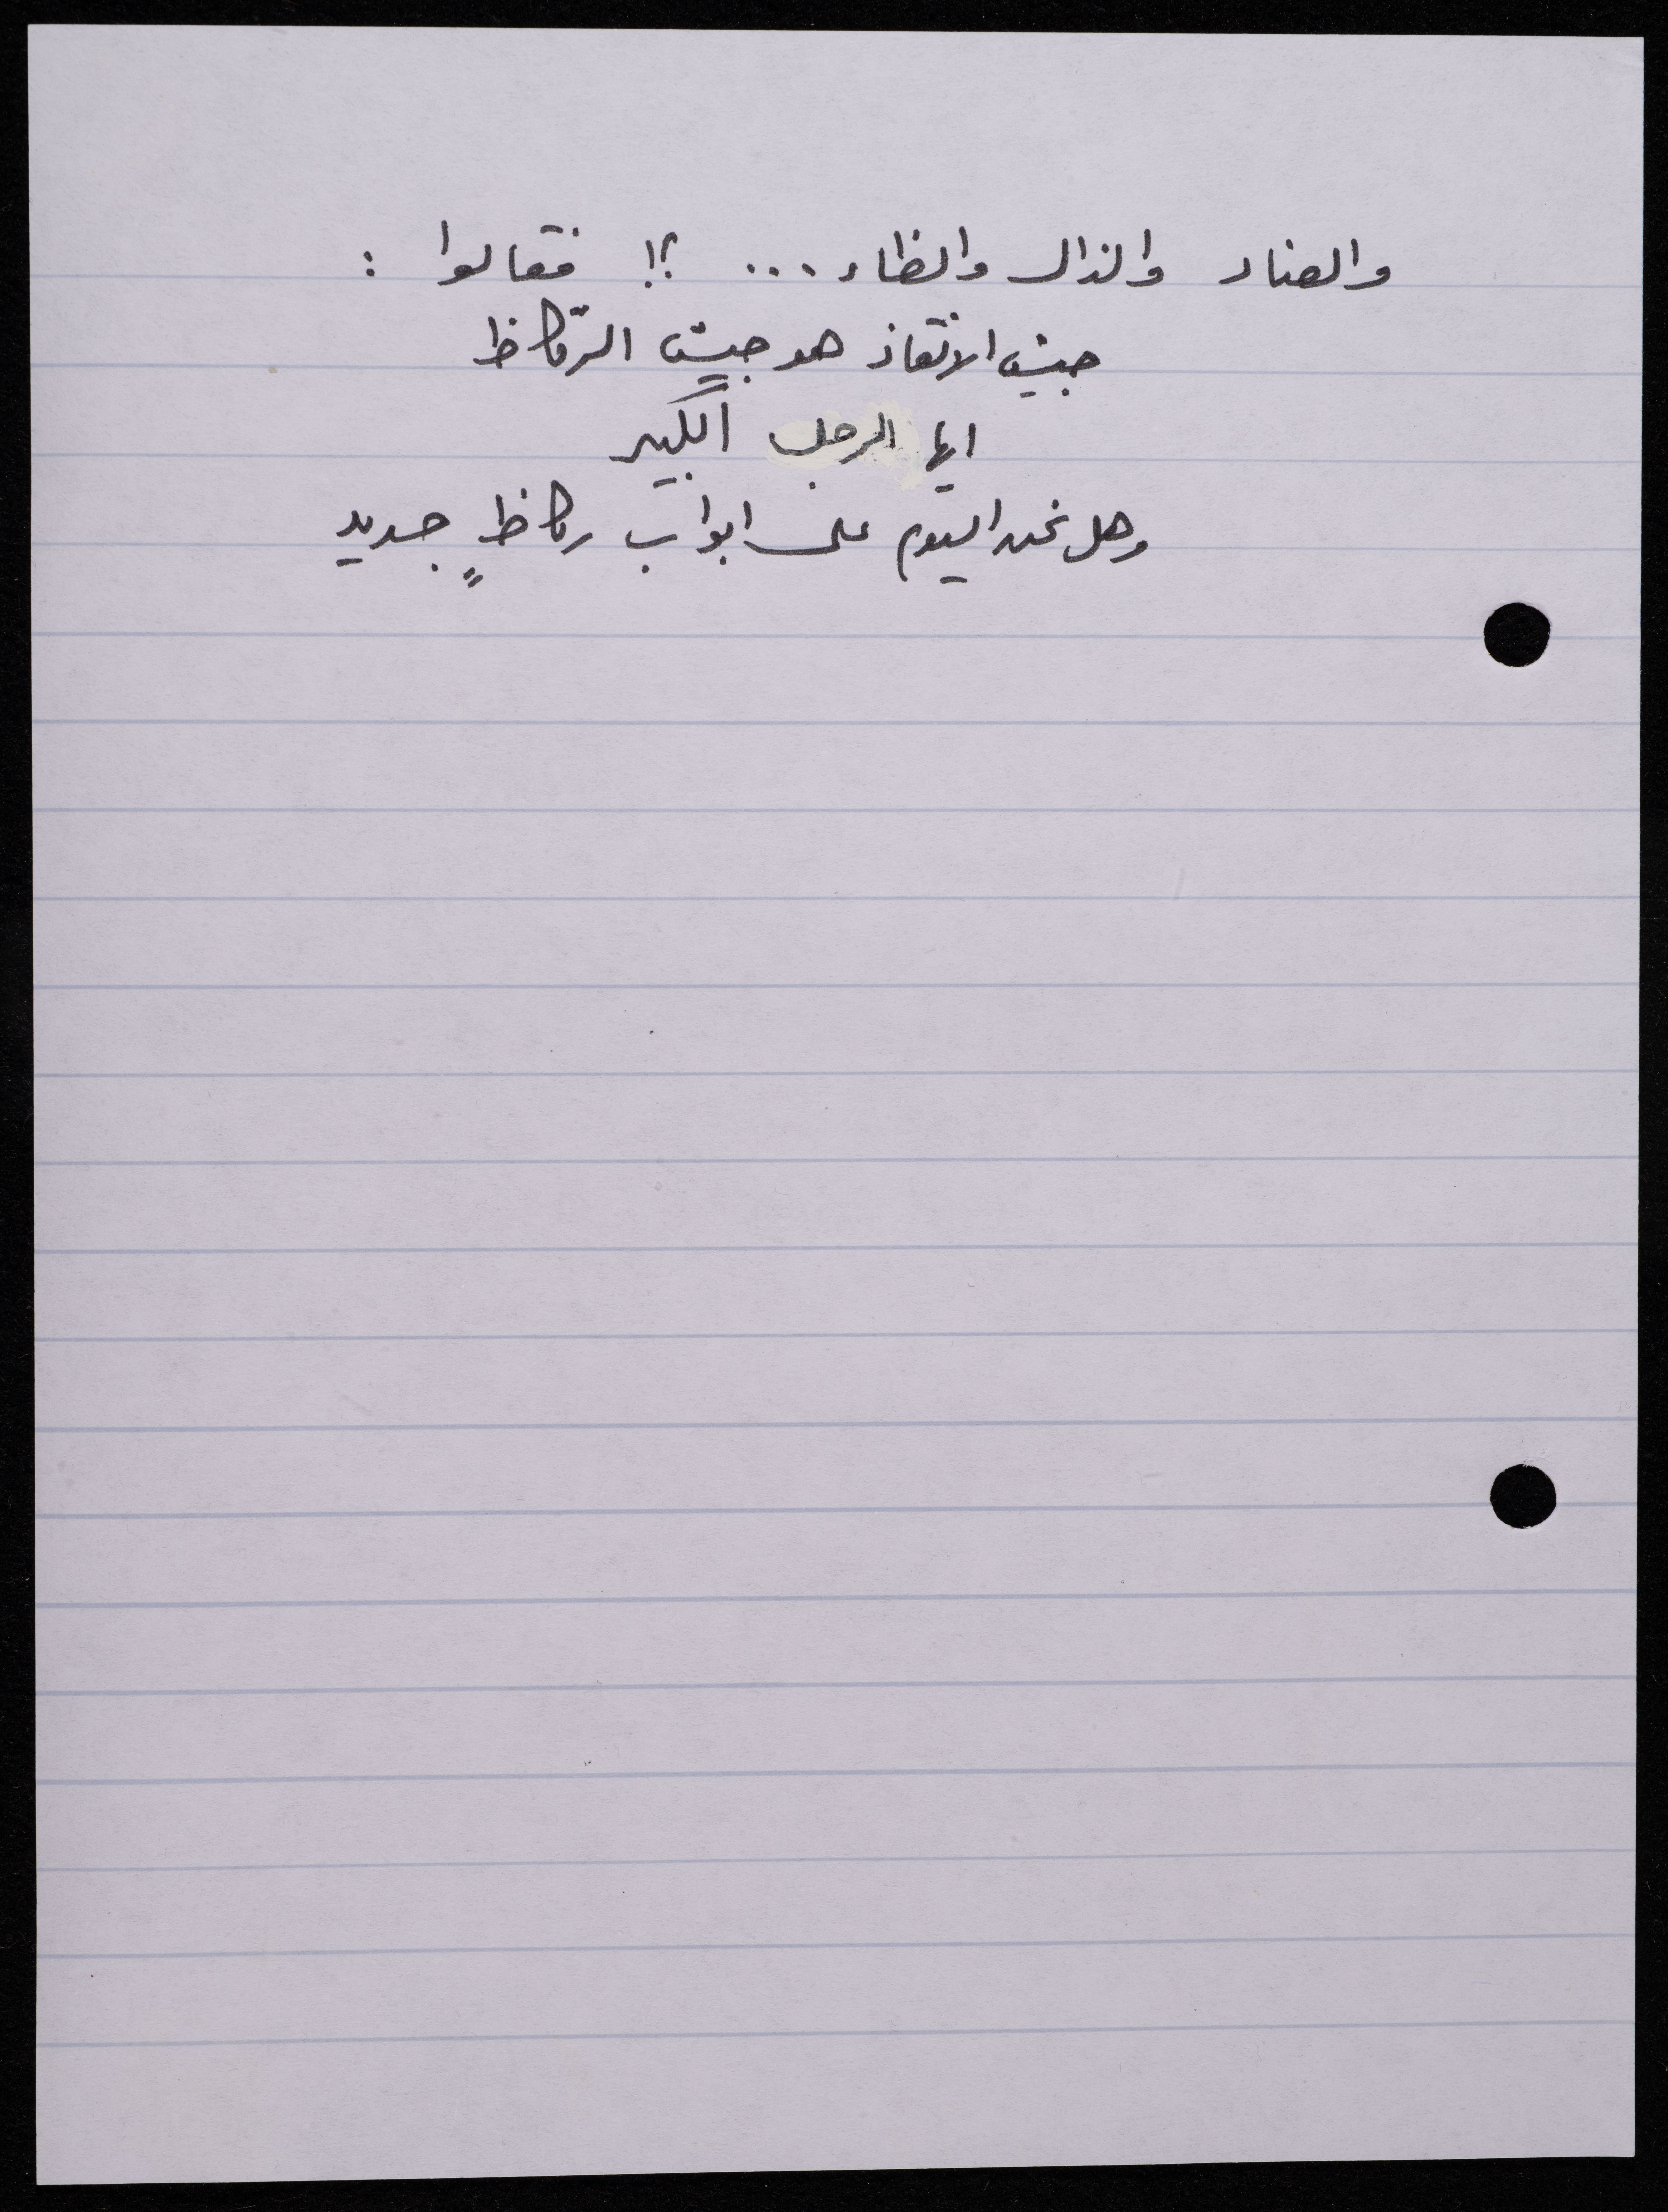 والضاد والذال والظاء ... ؟! فقالوا :
جيش الانقاذ هو جيش الرّكاظ
ايها الرجل الكبير
وهل نحن اليوم على ابواب ركاظٍ جديد